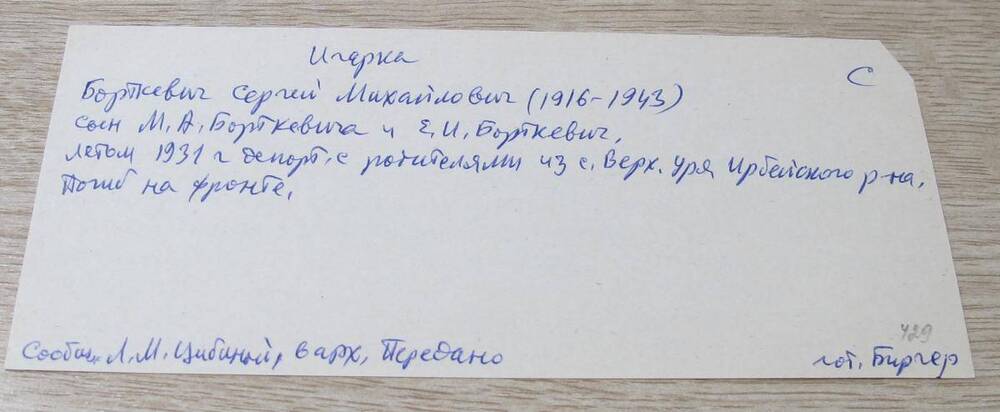 Игарка
С
Борткевич Сергей Михайлович (1916-1943)
сын М.А. Борткевича и Е.И. Борткевич,
летом 1931 г депорт. с родителями из с. Верх. Уря Ирбейского р-на.
Погиб на фронте.
429
Сообщ. Л.М. Цибиной, в арх. Передано
гот. Биргер